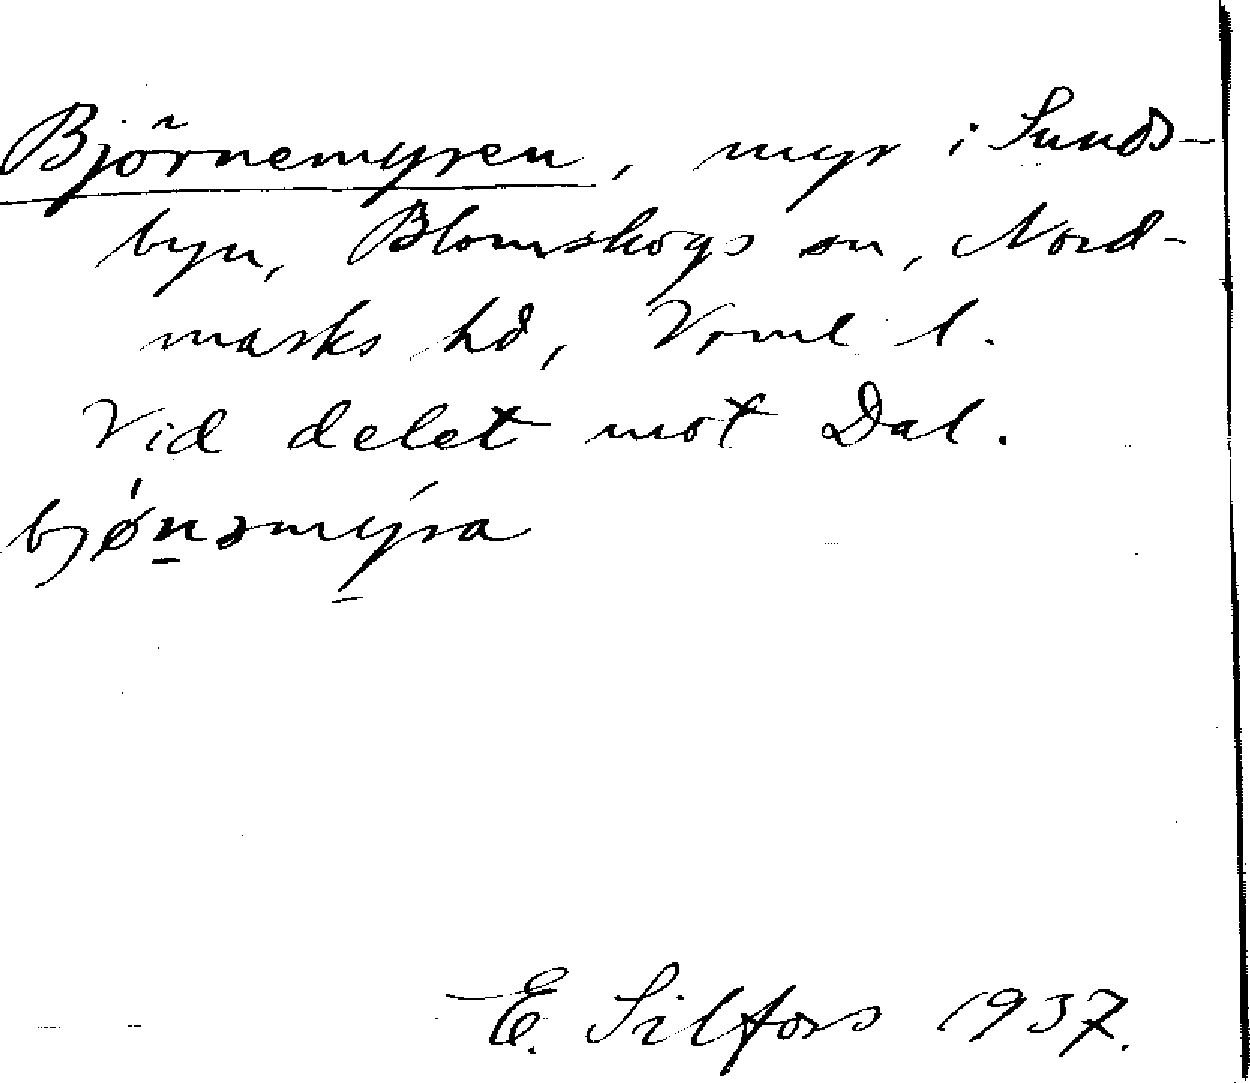 Björnemyren, myr i Sunds-
byn, Blomskogs sn, Nord-
marks hd, Vrml l.
Vid delet mot Dal.
bjǿn̲əmýra
E. Silfors 1937.